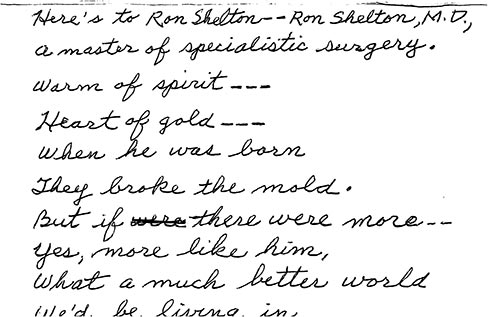 Here's to Ron Shelton--Ron Shelton, M.D.,
a master of specialistic surgery.
Warm of spirit---
Heart of gold---
When he was born
They broke the mold.
But if were there were more--
Yes, more like him,
What a much better world
We'd be living in.